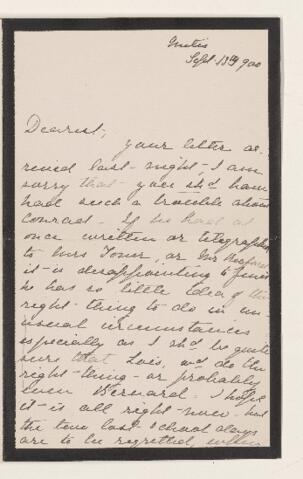 Metis
Sept 13th 900
Dearest,
your letter ar-
rived last night, I am
sorry that you shd have
had such a trouble about
Conrad. If he had at
once written or telegraphed
to Mrs Tower, or Mr
it is disappointing to find
he has so little idea of the
right thing to do in un-
usual circumstances
especially as I shd be quite
sure that Lois, wd do the
right thing or probably
even Bernard. I hope
it is all right now but
the two last school days
are to be regretted,